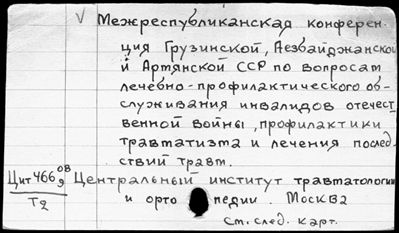 √ Межреспубликанская конферен-
ция Грузинской, Аезбайджанской
и Артянской ССР по вопросам
лечебно-профилактического об-
служивания инвалидов отечест
венной войны, профилактики
травтатизта и лечения послед-
ствий травт.
Цит 466 08/9 Центральный институт травтатологии
Т2 и орто педии. Москва
См. след. карт.